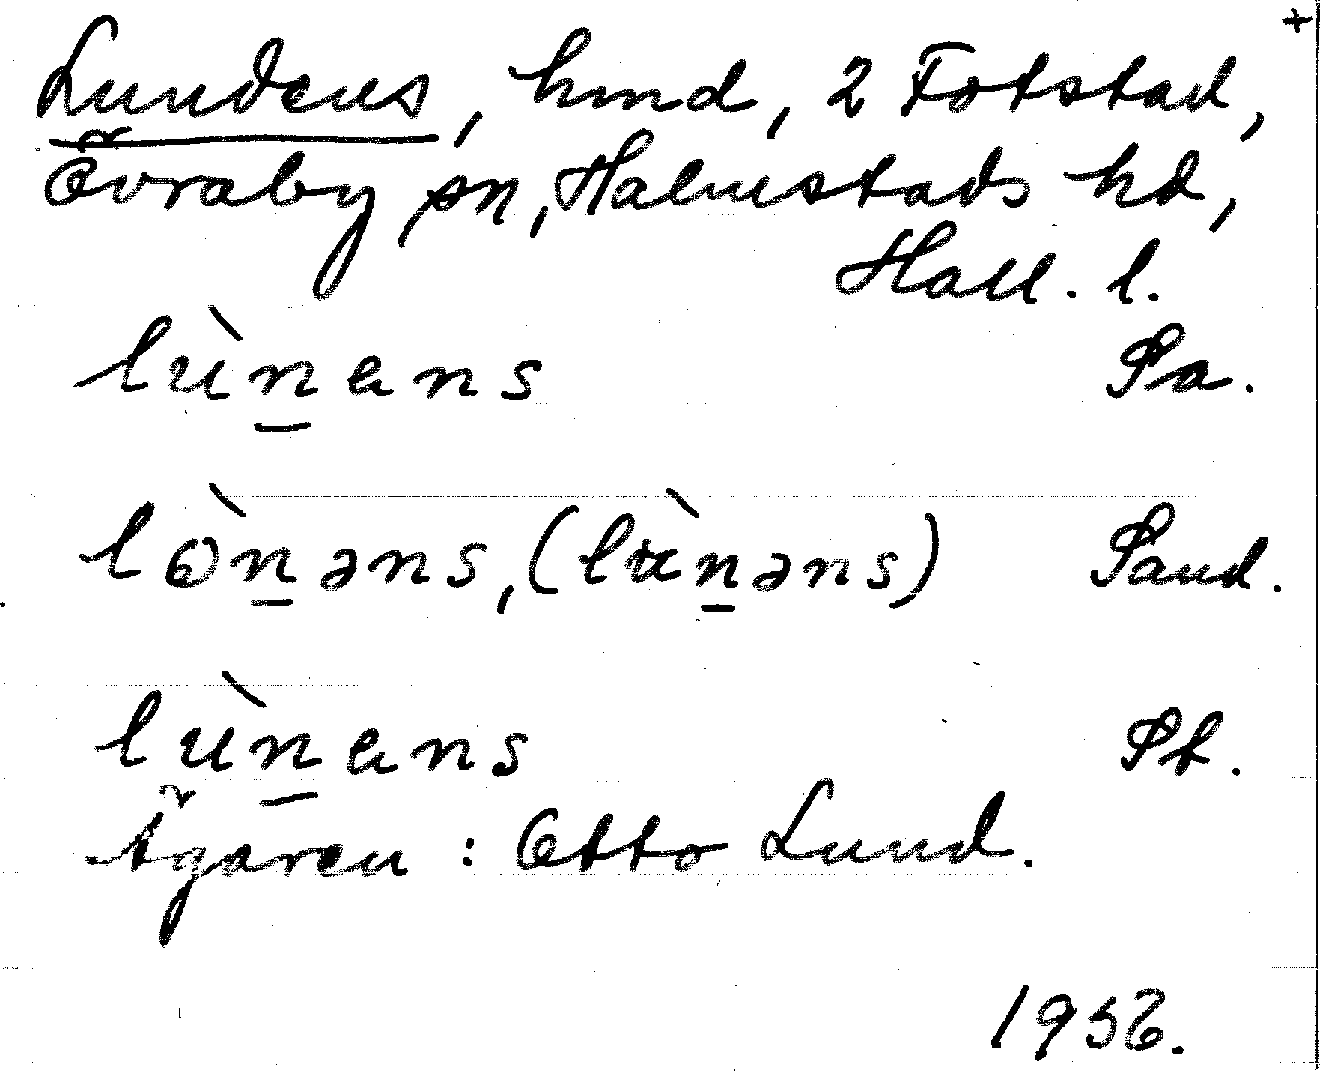 +
Lundens, hmd, 2 Fotstad,
Övraby sn, Halmstads hd,
Hall. l.
lùn̲ans Pa.
lòn̲əns, (lùn̲əns) Paud.
lùn̲ans Pf.
Ägaren : Otto Lund.
1956.